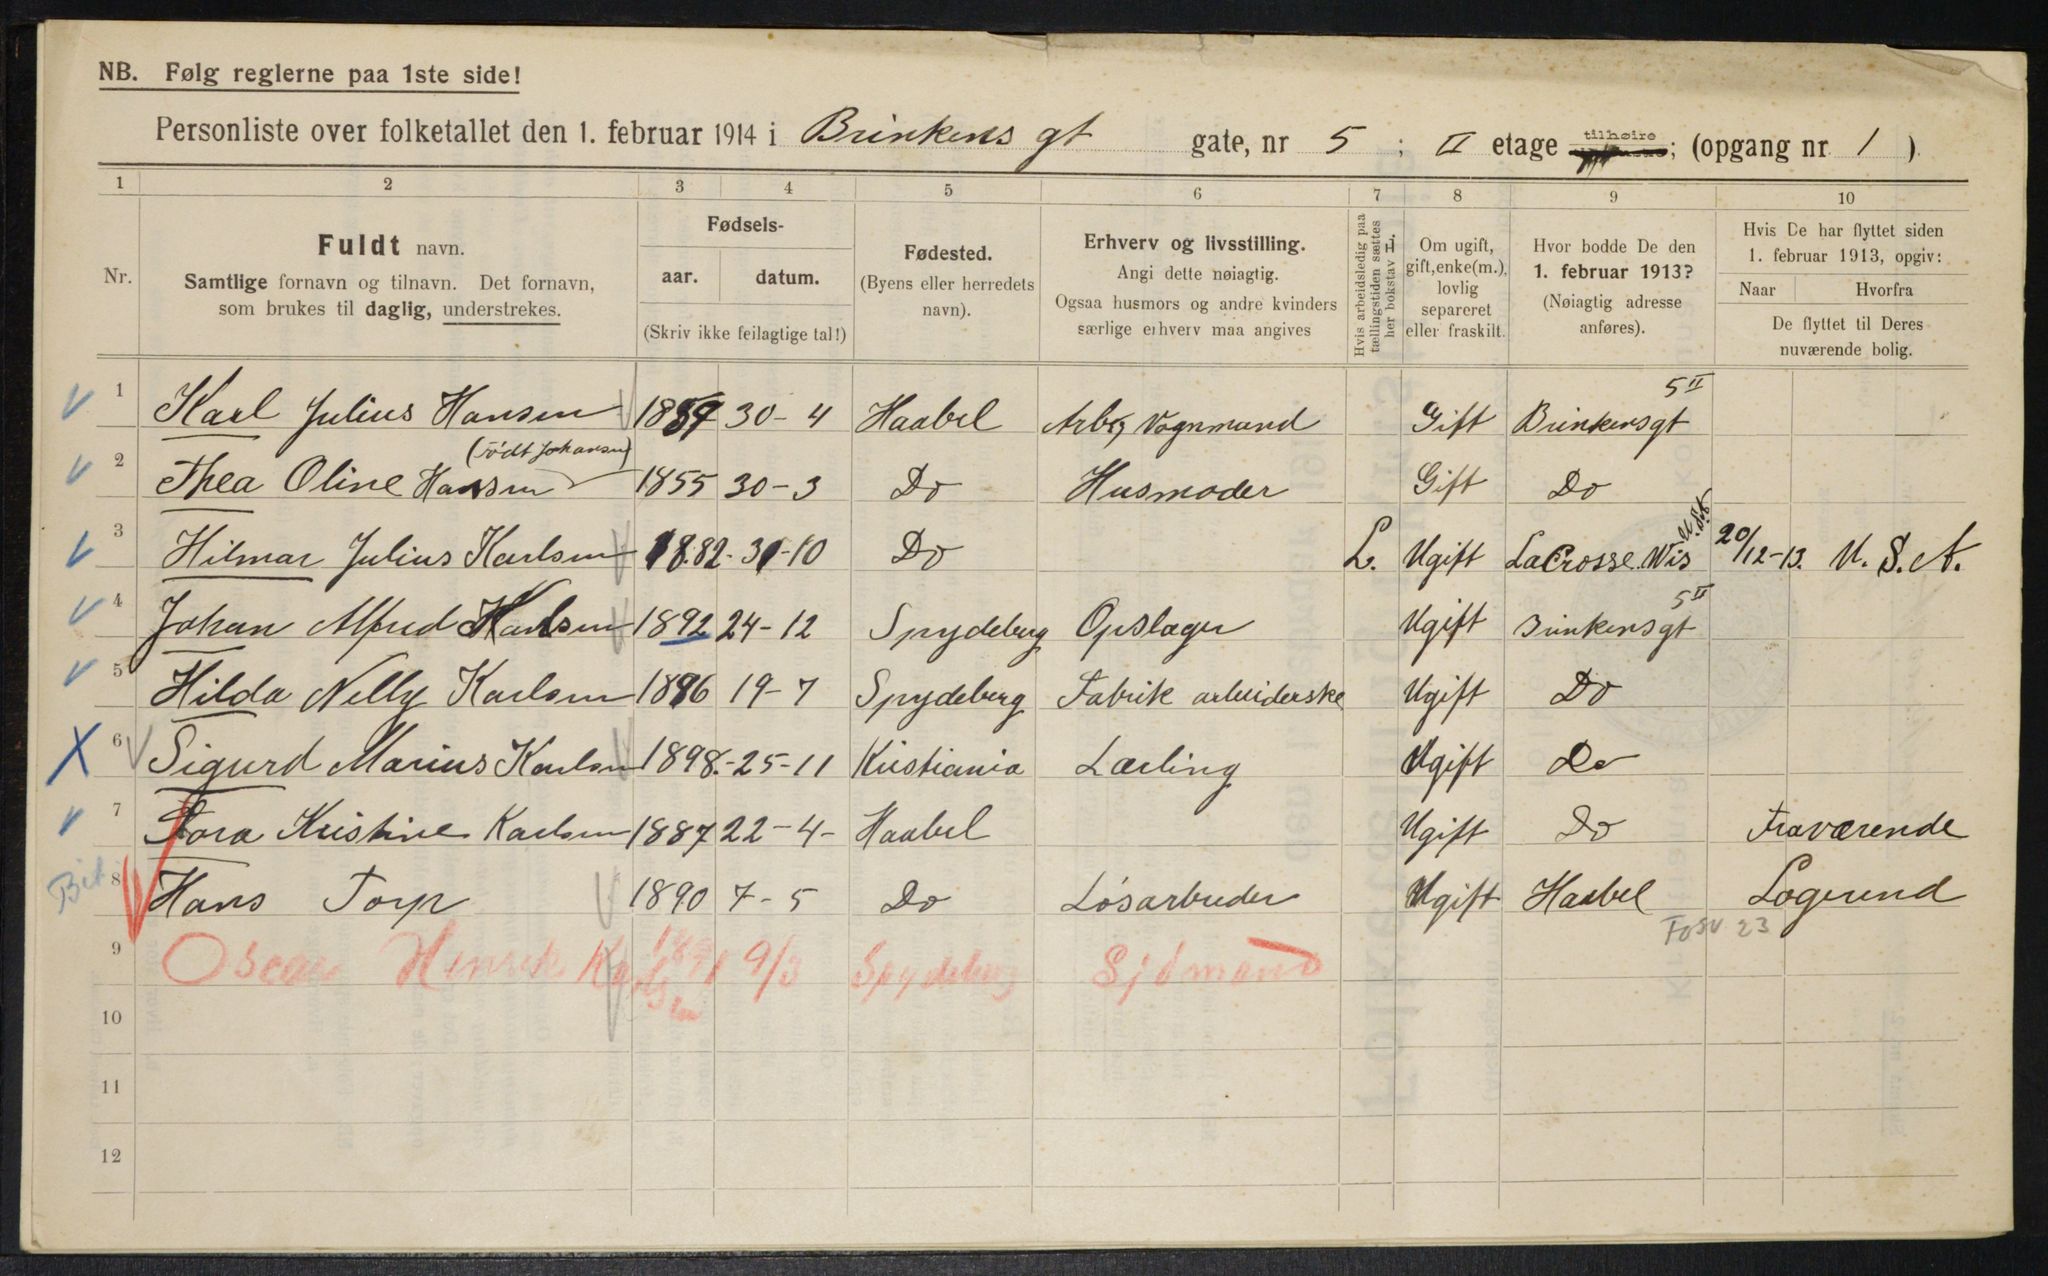 NB. Følg reglerne paa 1ste side!
Personliste over folketallet den 1. februar 1914 i Brinkens gt gate, nr 5 ; II etage tilhøire; (opgang nr 1 ).
1 2 3 4 5 6 7 8 9 10
Nr.
Fuldt navn.
Samtlige fornavn og tilnavn. Det fornavn,
som brukes til daglig, understrekes.
Fødsels-
aar. datum.
(Skriv ikke feilagtige tal!)
Fødested.
(Byens eller herredets
navn).
Erhverv og livsstilling.
Angi dette nøiagtig.
Ogsaa husmors og andre kvinders
særlige erhverv maa angives
Hvis arbeidsledig paa
tællingstiden sættes
her bokstav L.
Om ugift,
gift, enke(m.),
lovlig
separeret
eller fraskilt.
Hvor bodde De den
1. februar 1913?
(Nøiagtig adresse
anføres).
Hvis De har flyttet siden
1. februar 1913, opgiv:
Naar Hvorfra
De flyttet til Deres
nuværende bolig.
1 Karl Julius Hansen 1859 30-4 Haabel Arb, Vognmand Gift Brinkensgt 5 II
2 Thea Oline Hansen (født Johansen) 1855 30-3 Do Husmoder Gift Do
3 Hilmar Julius Karlsen 1882-31-10 Do L. Ugift LaCrosse. Wis 20/12-13. U. S. A.
4 Johan Alfred Karlsen 1892 24-12 Spydeberg Opslager Ugift Brinkensgt 5 II
5 Hilda Nelly Karlsen 1896 19-7 Spydeberg Fabrik arbeiderske Ugift Do
6 Sigurd Marius Karlsen 1898.-25-11 Kristiania Lærling Ugift Do
7 Tora Kristine Karlsen 1887 22-4- Haabel Ugift Do Fraværende
8 Hans Torp 1890 7-5 Do Løsarbeider Ugift Haabel Logerend
9 Oscar Henrik Karlsen 1891 9/3 Spydeberg Sjømand
10
11
12